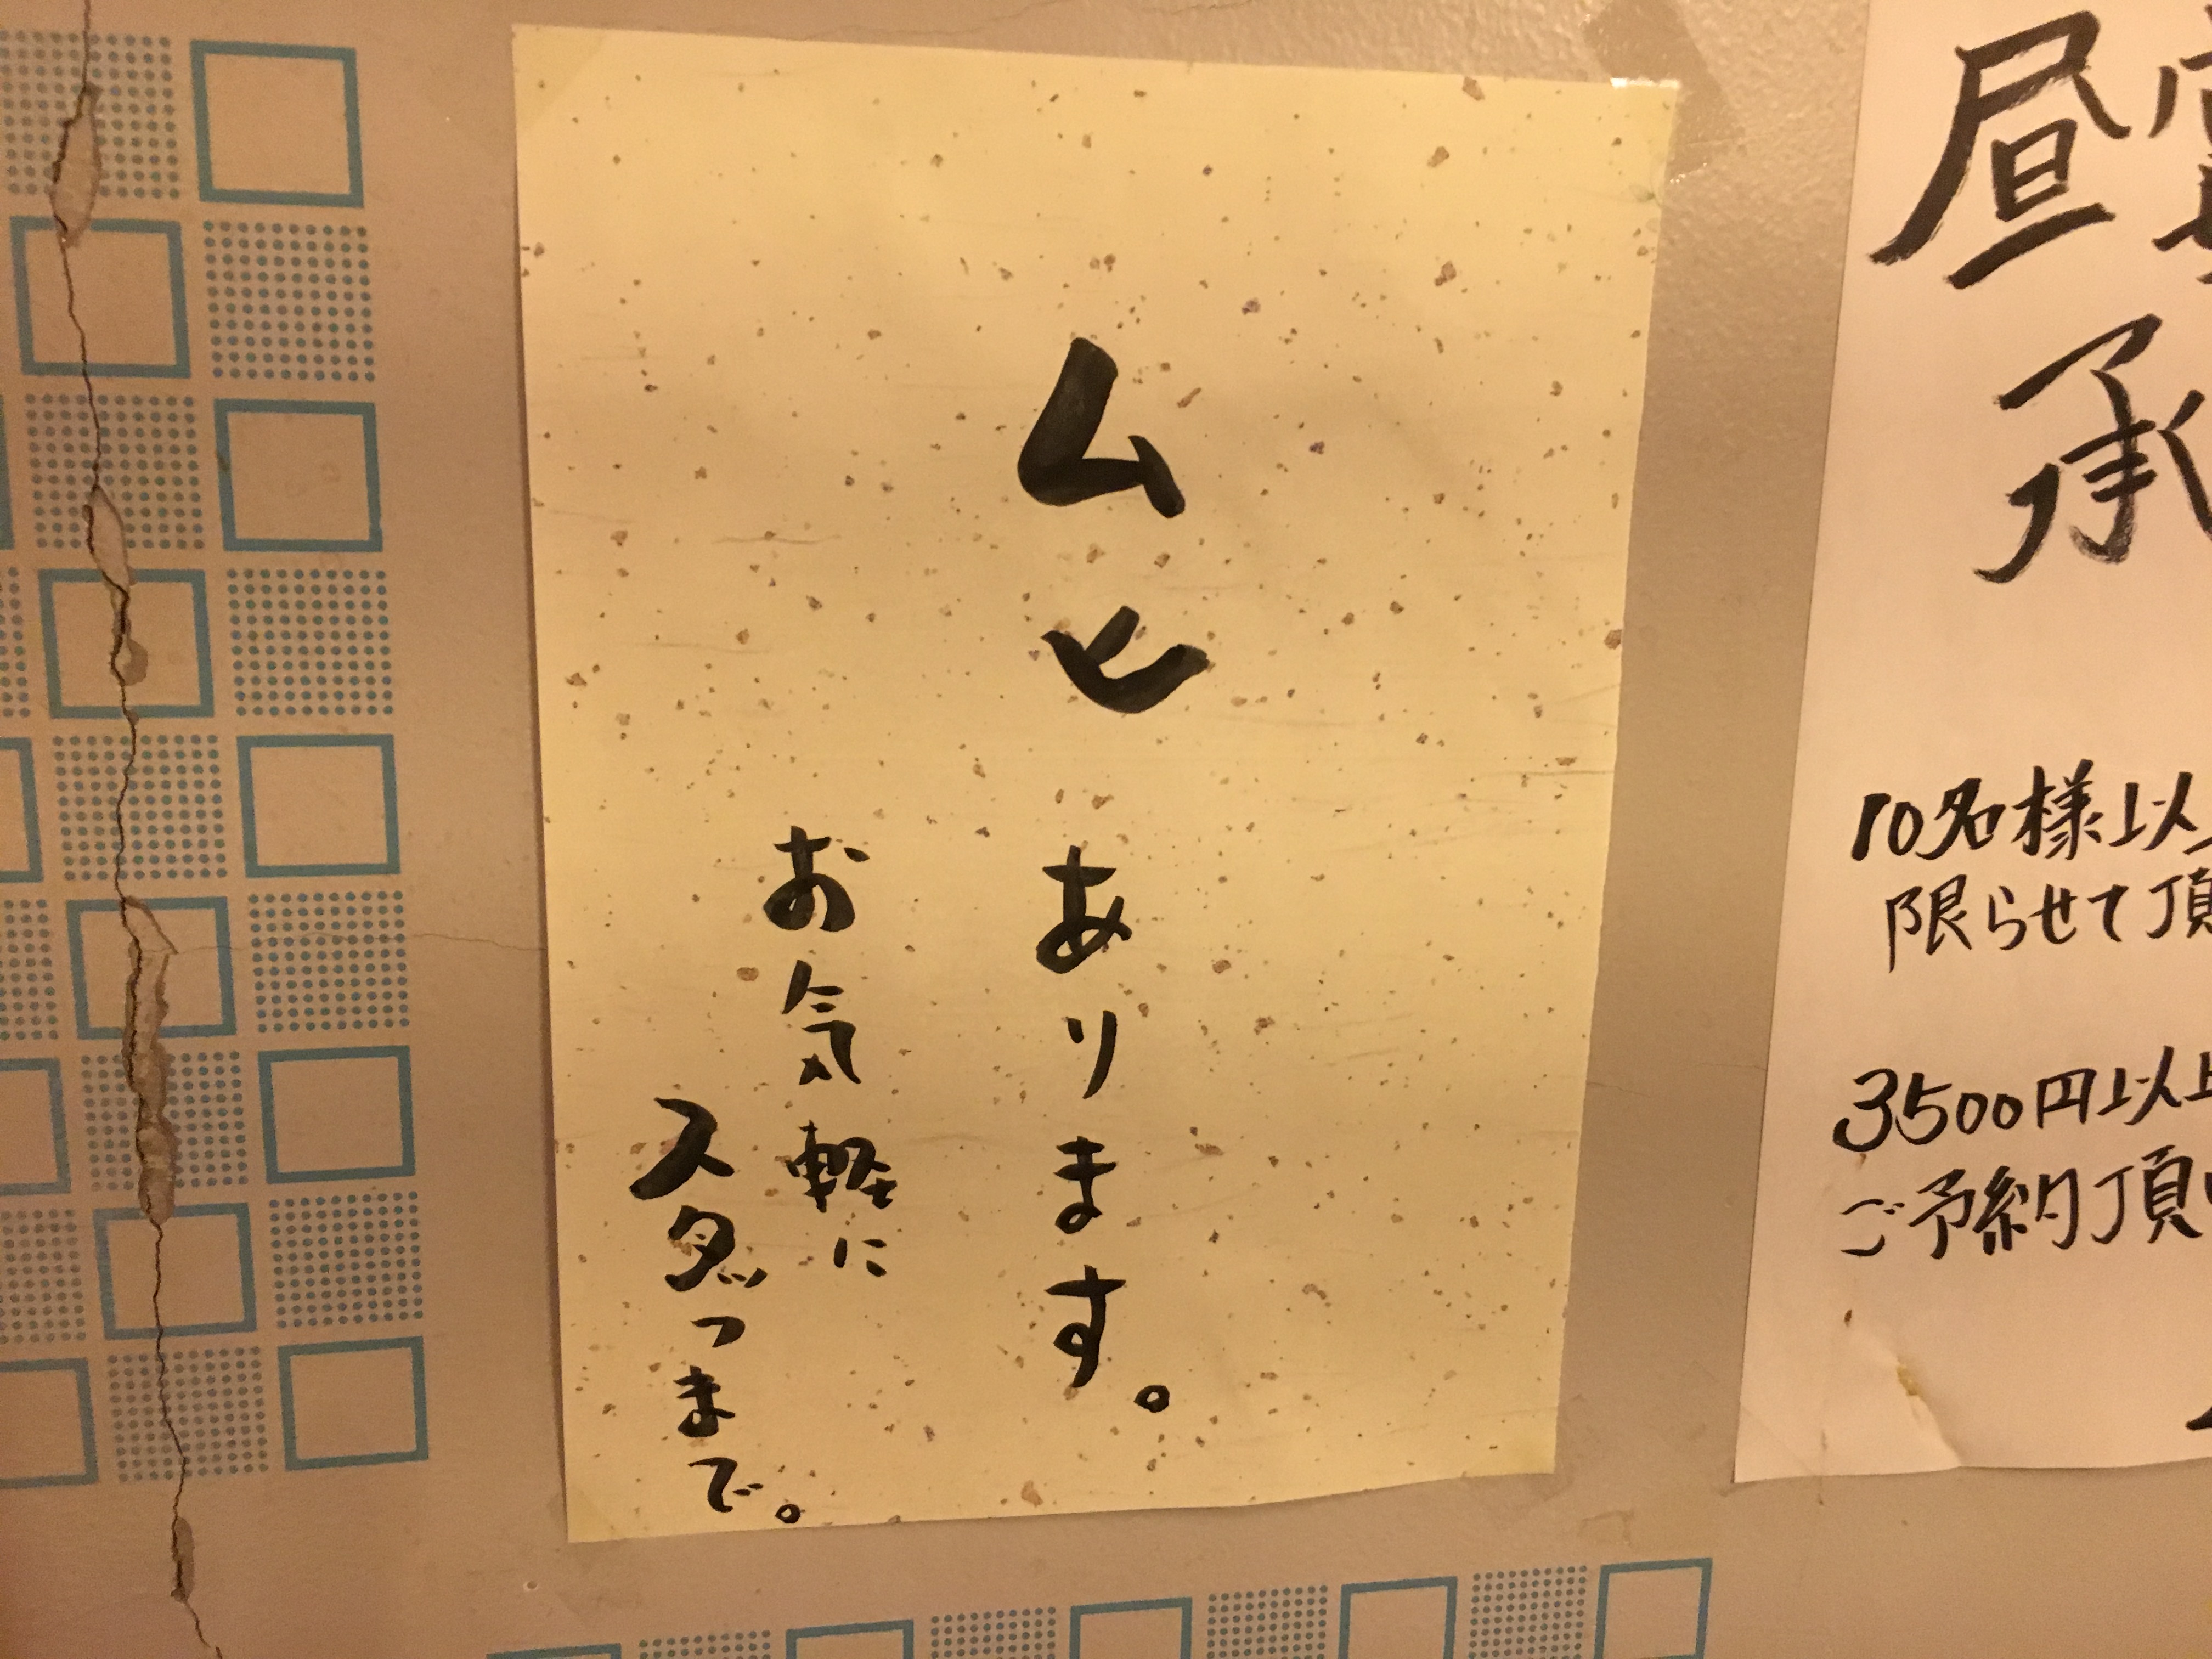 ムヒあります。
お気軽に
スタッつまで。
昼宴
承
10名様以
限らせて頂
3500円以上
ご予約頂